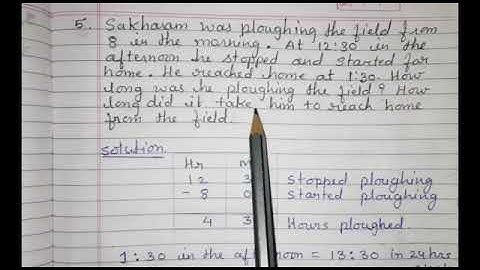 5. Sakharam was ploughing the field from
8 in the morning. At 12:30 in the
afternoon he stopped and started for
home. He reached home at 1:30. How
long was he ploughing the field? How
long did it take him to reach home
from the field.
Solution
Hr M
12 3 Stopped ploughing
- 8 0 Started ploughing
4 3 Hours ploughed.
1:30 in the afternoon = 13:30 in 24hrs